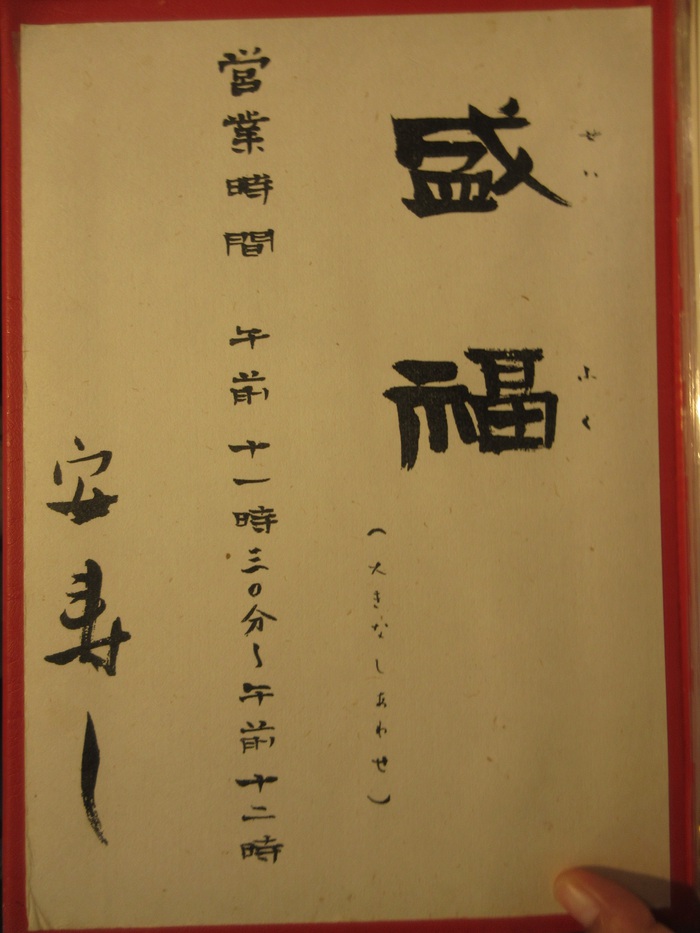 せいふく
盛福
(大きなしあわせ)
営業時間 午前十一時三〇分～午前十二時
安寿し